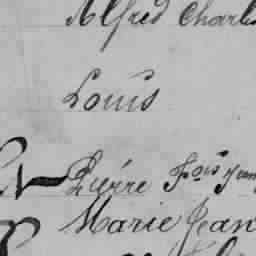 Alfred Charl
Louis
N Pierre Fois
Marie Jean